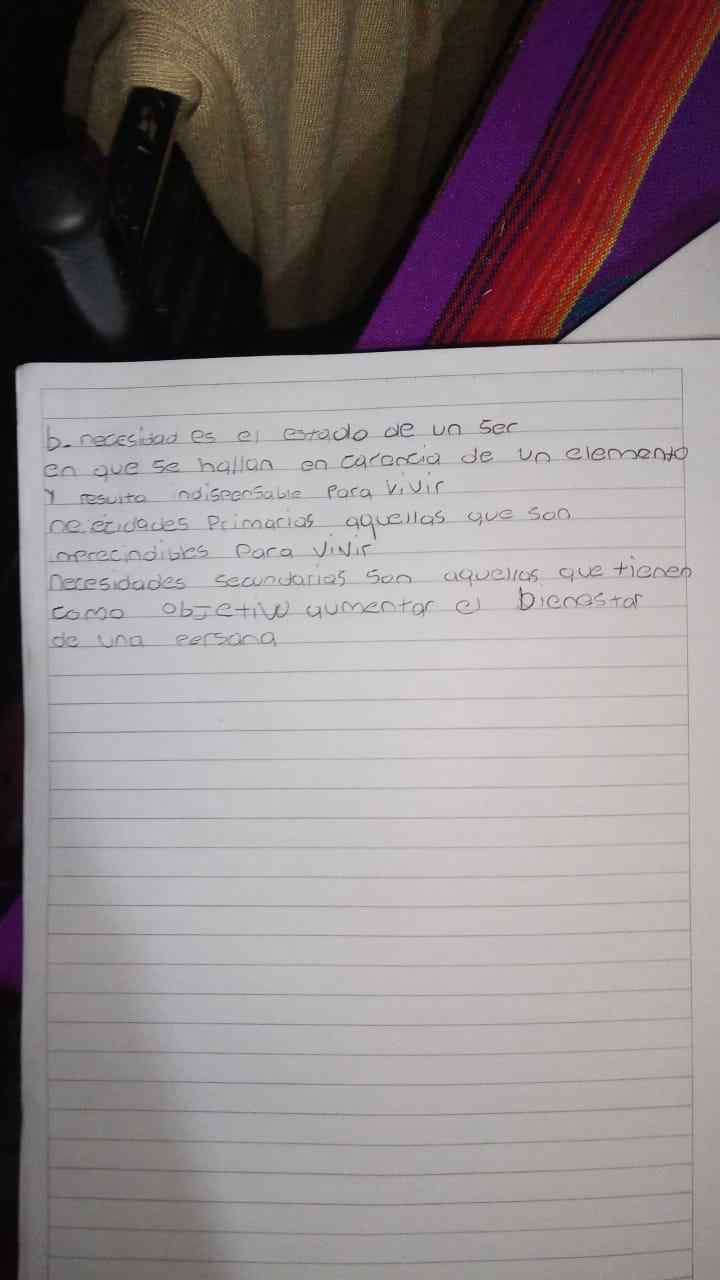 b- necesidad es el estado de un ser
en que se hallan en carancia de un elemento
y resulta indispensable para vivir
nececidades Primarias aquellas que son
imprecindibles para vivir
necesidades secundarias son aquellas que tienen
como objetivo aumentar el bienestar
de una persana